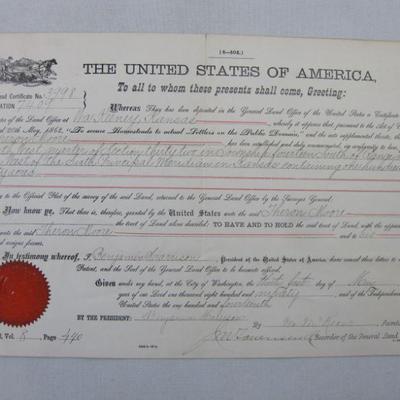 (4-404.)
THE UNITED STATES OF AMERICA,
Certificate No. 3998
To all to whom these presents shall come, Greeting:
7409
Whereas There has been deposited in the General Land Office of the United States a Certificate
Land Office at Wa Keeney, Kansas, whereby it appears that, pursuant to the
20th May, 1862, "To secure Homesteads to actual Settlers on the Public Domain," and the acts supplemental thereto, the
Moore has been established and duly consummated, in conformity to law,
East quarter of Section thirty two in Township fourteen South of Range
West of the Sixth Principal Meridian in Kansas containing one hundred
acres
to the Official Plat of the survey of the said Land, returned to the General Land Office by the Surveyor General
Now know ye, That there is, therefore, granted by the United States unto the said Theron Moore
the tract of Land above described: TO HAVE AND TO HOLD the said tract of Land, with the
unto the said Theron Moore and to his
and assigns forever.
In testimony whereof, I, Benjamin Harrison, President of the United States of America, have caused these letters to
Patent, and the Seal of the General Land Office to be hereunto affixed.
Given under my hand, at the City of Washington, the thirty first day of
year of our Lord one thousand eight hundred and ninety, and of the Independence
United States the one hundred and fourteenth
BY THE PRESIDENT: Benjamin Harrison
By
Recorder of the General Land
Vol. 8, Page 440